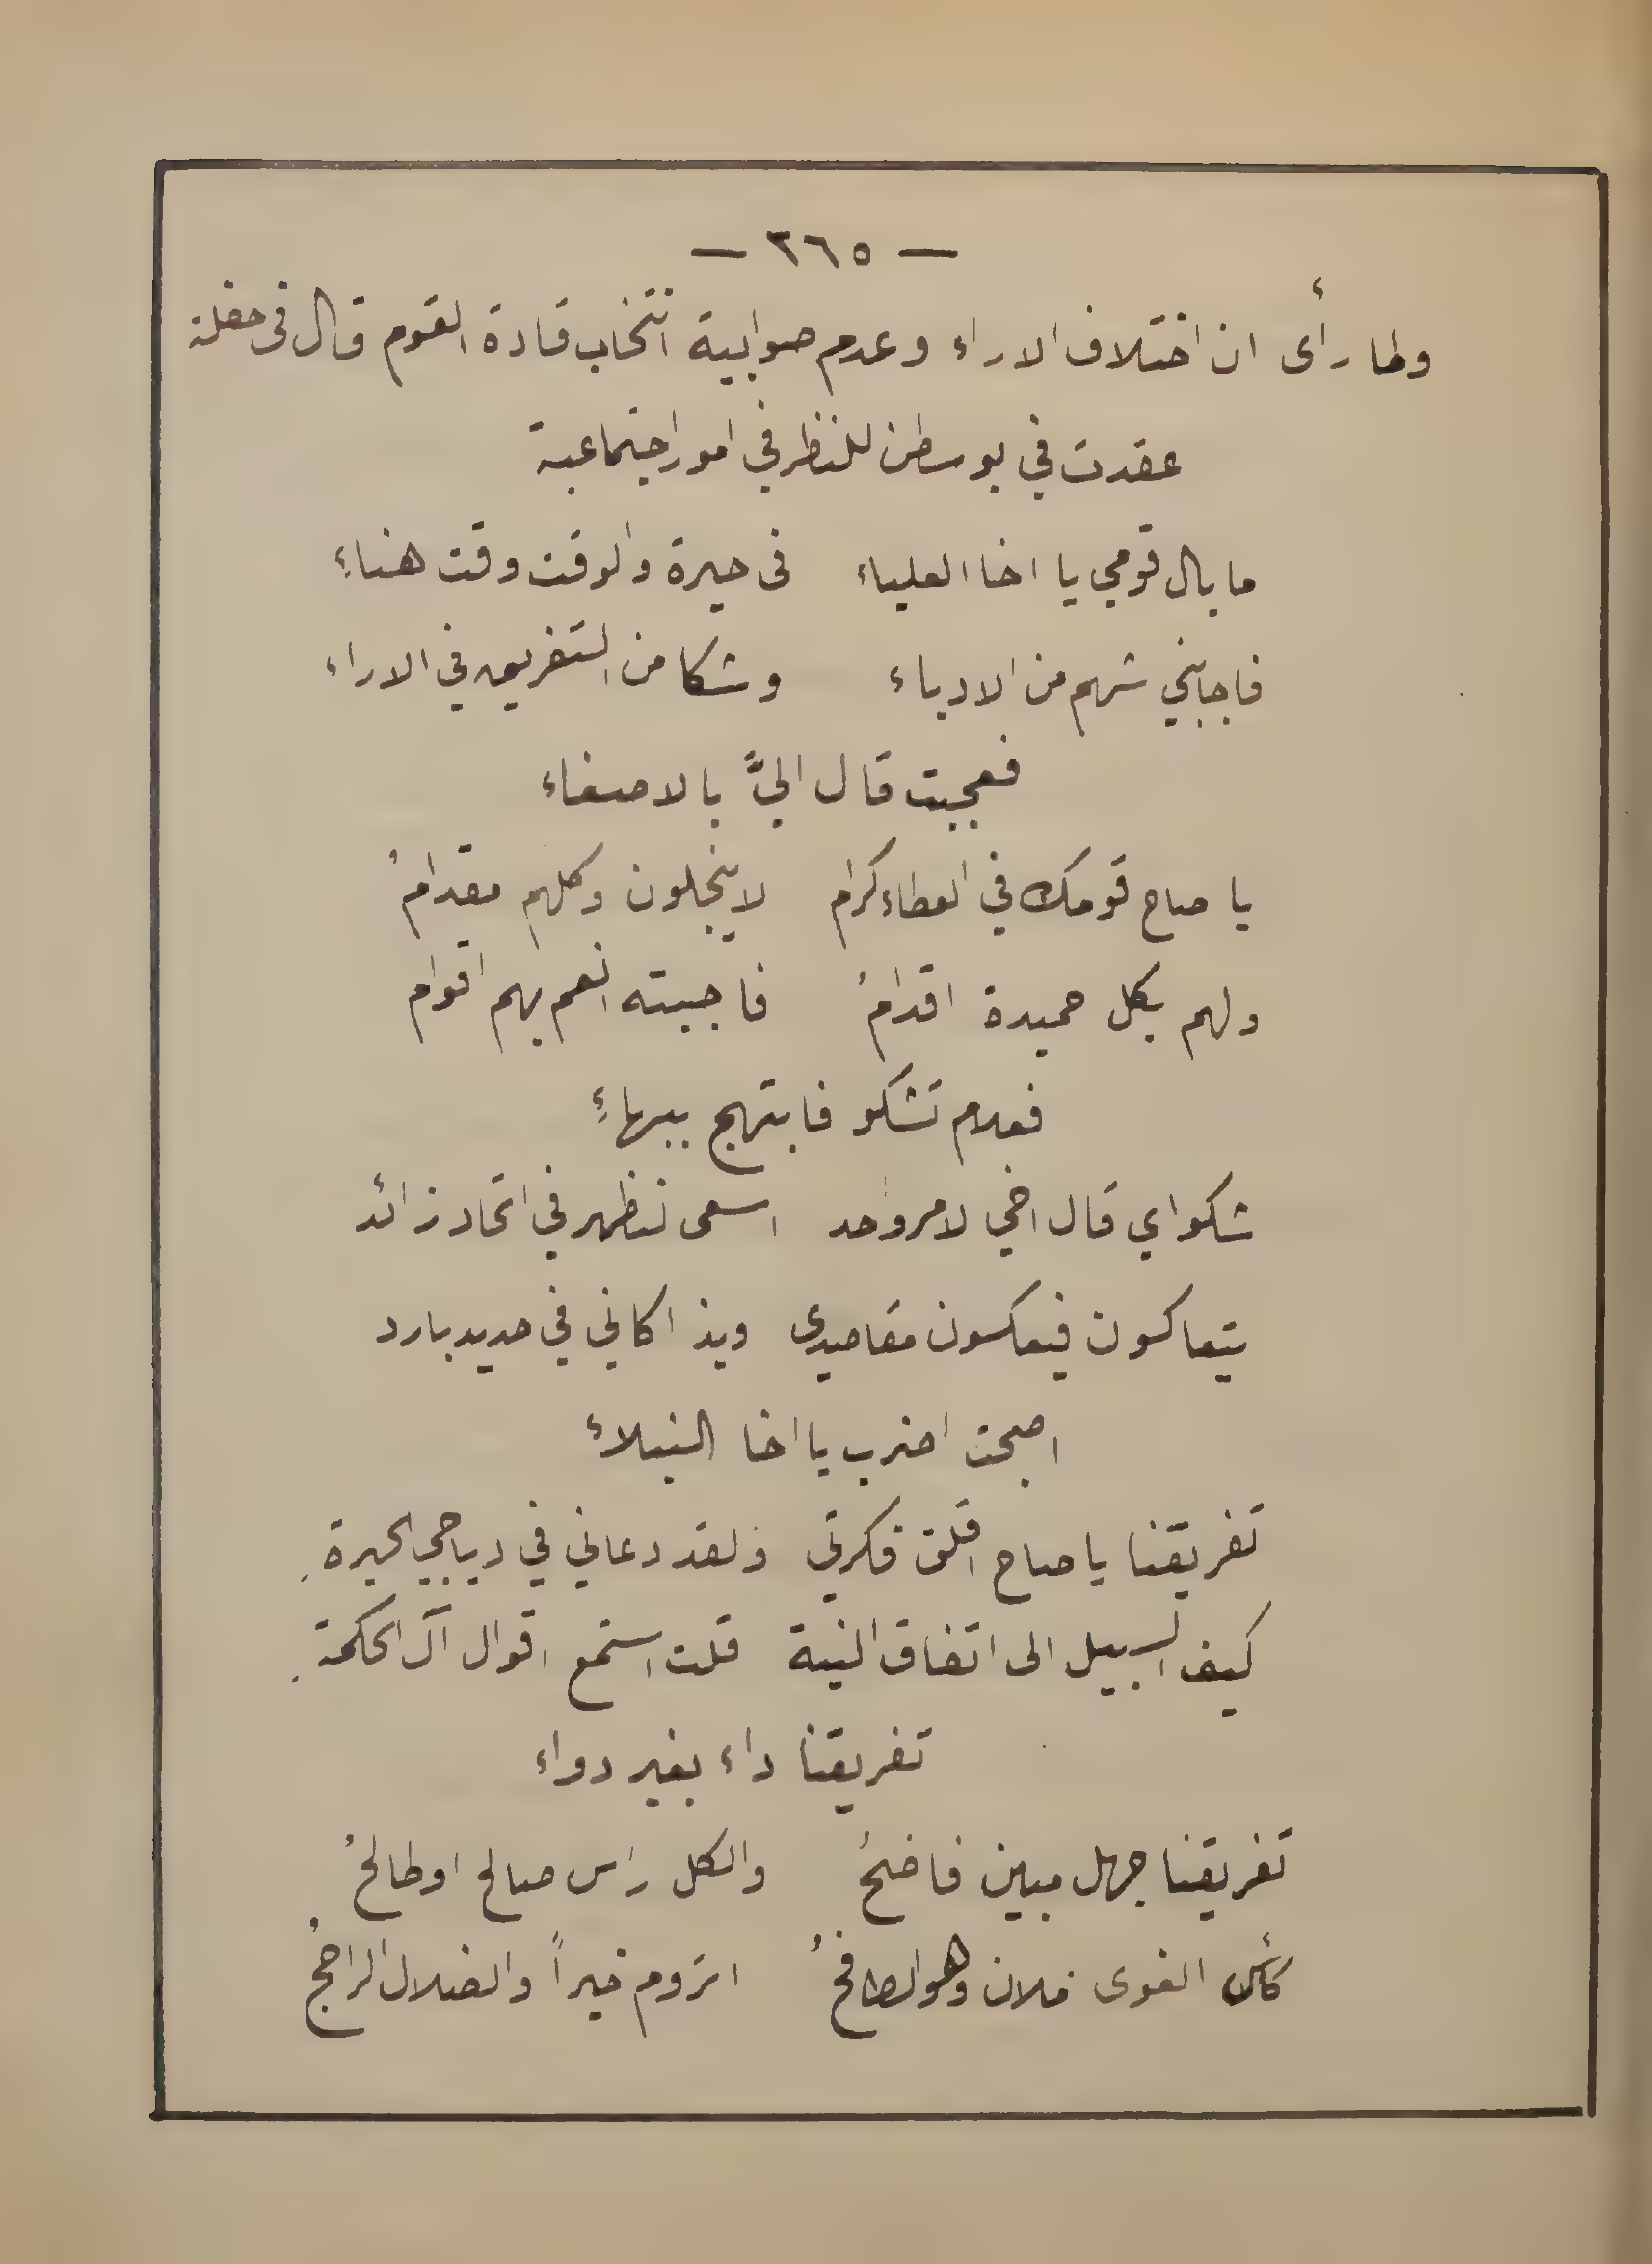 — ٢٦٥ —
ولما رأى ان اختلاف الاراء وعدم صوابية انتخاب قادة القوم قال في حفلة
عقدت في بوسطن للنظر في امور اجتماعية
ما بال قومي يا اخا العلياء في حيرة والوقت وقت هناءِ
فاجابني شهم من الادباء وشكا من التفريق في الاراء
فعجبت قال اليَّ بالاصغاء
يا صاح قومك في العطاء كرام لا يبخلون وكلهم مقدامُ
ولهم بكل حميدة اقدامُ فاجبته انعم بهم اقوام
فعلام تشكو فابتهج ببهاءِ
شكواي قال اخي لامر واحد اسعى لنظهر في اتحاد زائد
يتعاكسون فيعكسون مقاصدي وبذا كاني في حديد بارد
اصبحت اضرب يا اخا النبلاء
تفريقنا يا صاح اقلق فكرتي ولقد دعاني في دياجي الحيرةِ
كيف السبيل الى اتفاق النية قلت استمع اقوال آل الحكمةِ
تفريقنا داء بغير دواء
تفريقنا جهل مبين فاضحُ والكل رأس صالح او طالحُ
كأس الغوى ملان وهو الطافحُ اتروم خيراً والضلال الراجحُ